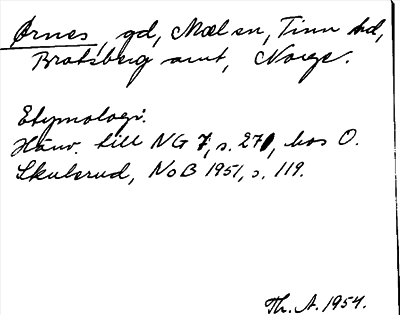 Ørnes, gd, Mæl sn, Tinn hd,
Bratsberg amt, Norge.
Etymologi.
Hänv. till NG 7, s. 270, hos O.
Skulerud, NoB 1951, s. 119.
Th. A. 1954.